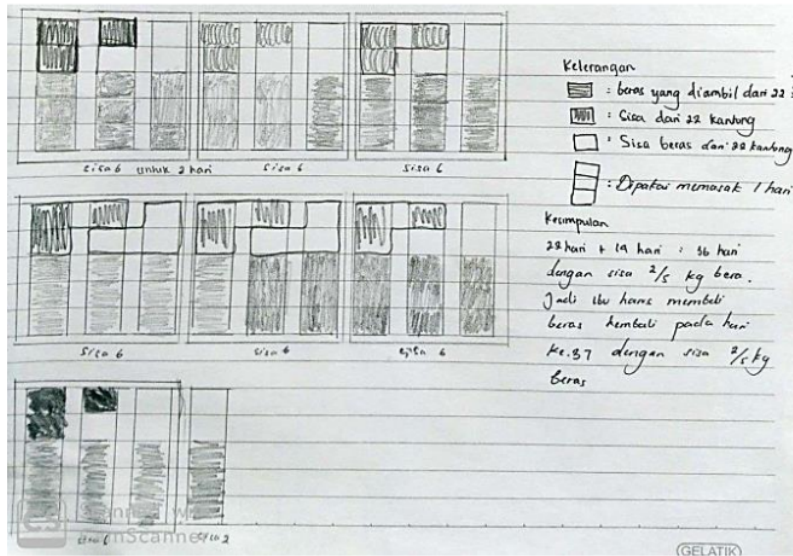 sisa 6 untuk 2 hari
sisa 6
sisa 6
Keterangan
: beras yang diambil dari 22
: Sisa dari 22 kantong
: Sisa beras dari 22 kantong
: Dipakai memasak 1 hari
sisa 6
sisa 6
sisa 6
Kesimpulan
22 hari + 14 hari = 36 hari
dengan sisa 2/5 kg beras.
Jadi Ibu harus membeli
beras kembali pada hari
ke.37 dengan sisa 2/5 kg
beras
sisa 6
sisa 2
CS
CamScanner
GELATIK